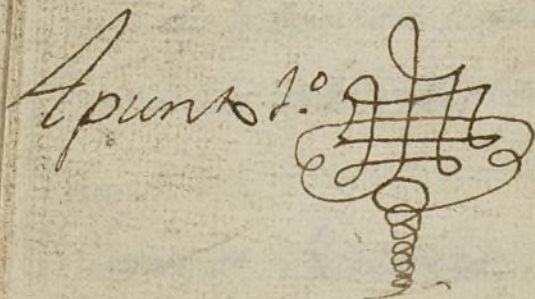 Apunto 1.º